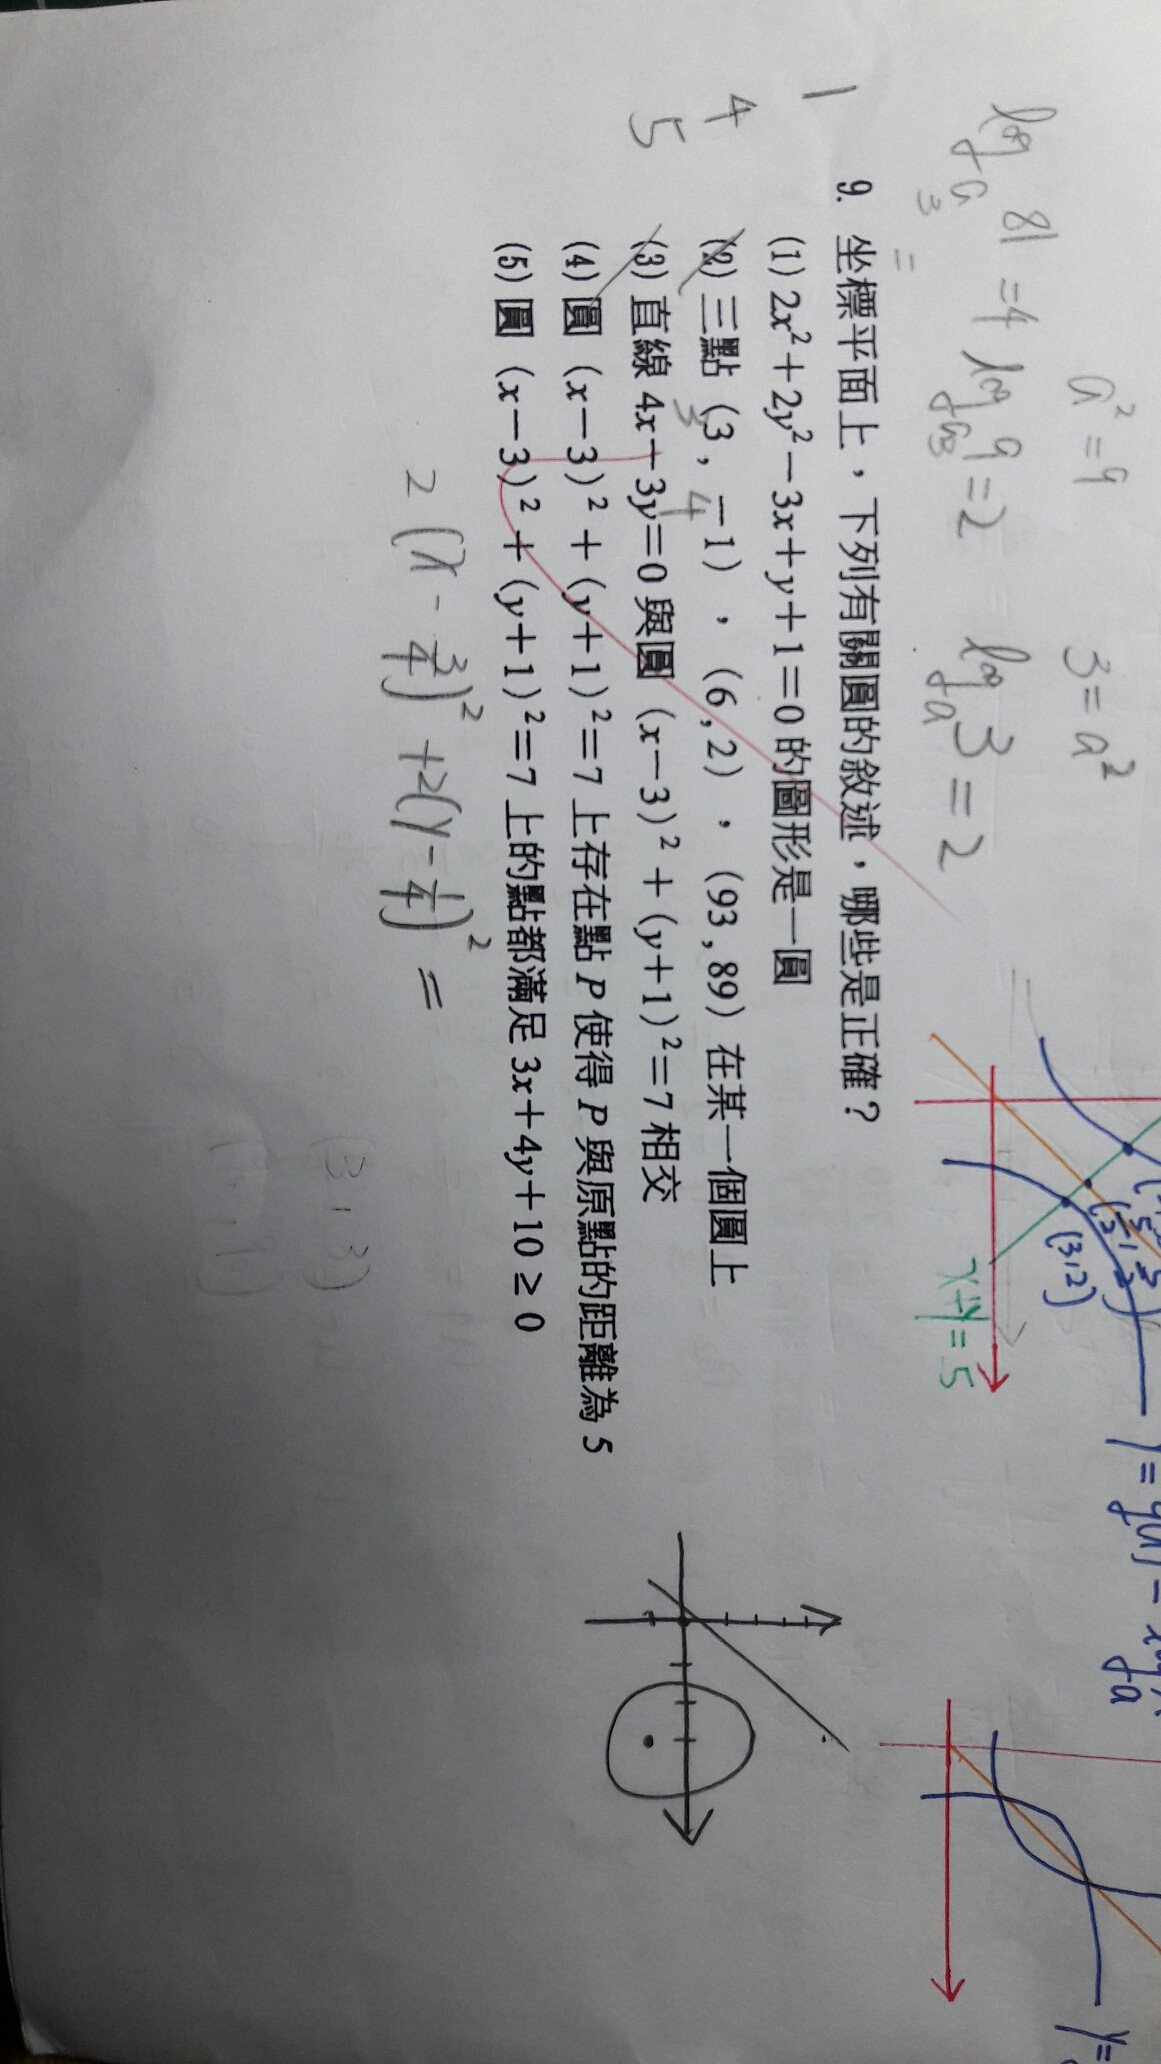 a²=9 3=a²
log_a 81=4 log_a 9=2 log_a 3=2
3 =
y=g(x)=log_a x
(3,2)
x+y=5
y=
1
4
5
9. 坐標平面上，下列有關圓的敘述，哪些是正確？
(1) 2x²+2y²−3x+y+1=0 的圖形是一圓
(2) 三點 (3,−1)，(6,2)，(93,89) 在某一個圓上
3 4
(3) 直線 4x+3y=0 與圓 (x−3)²+(y+1)²=7 相交
(4) 圓 (x−3)²+(y+1)²=7 上存在點 P 使得 P 與原點的距離為 5
(5) 圓 (x−3)²+(y+1)²=7 上的點都滿足 3x+4y+10≥0
2(x-3/4)²+2(y-1/4)²=